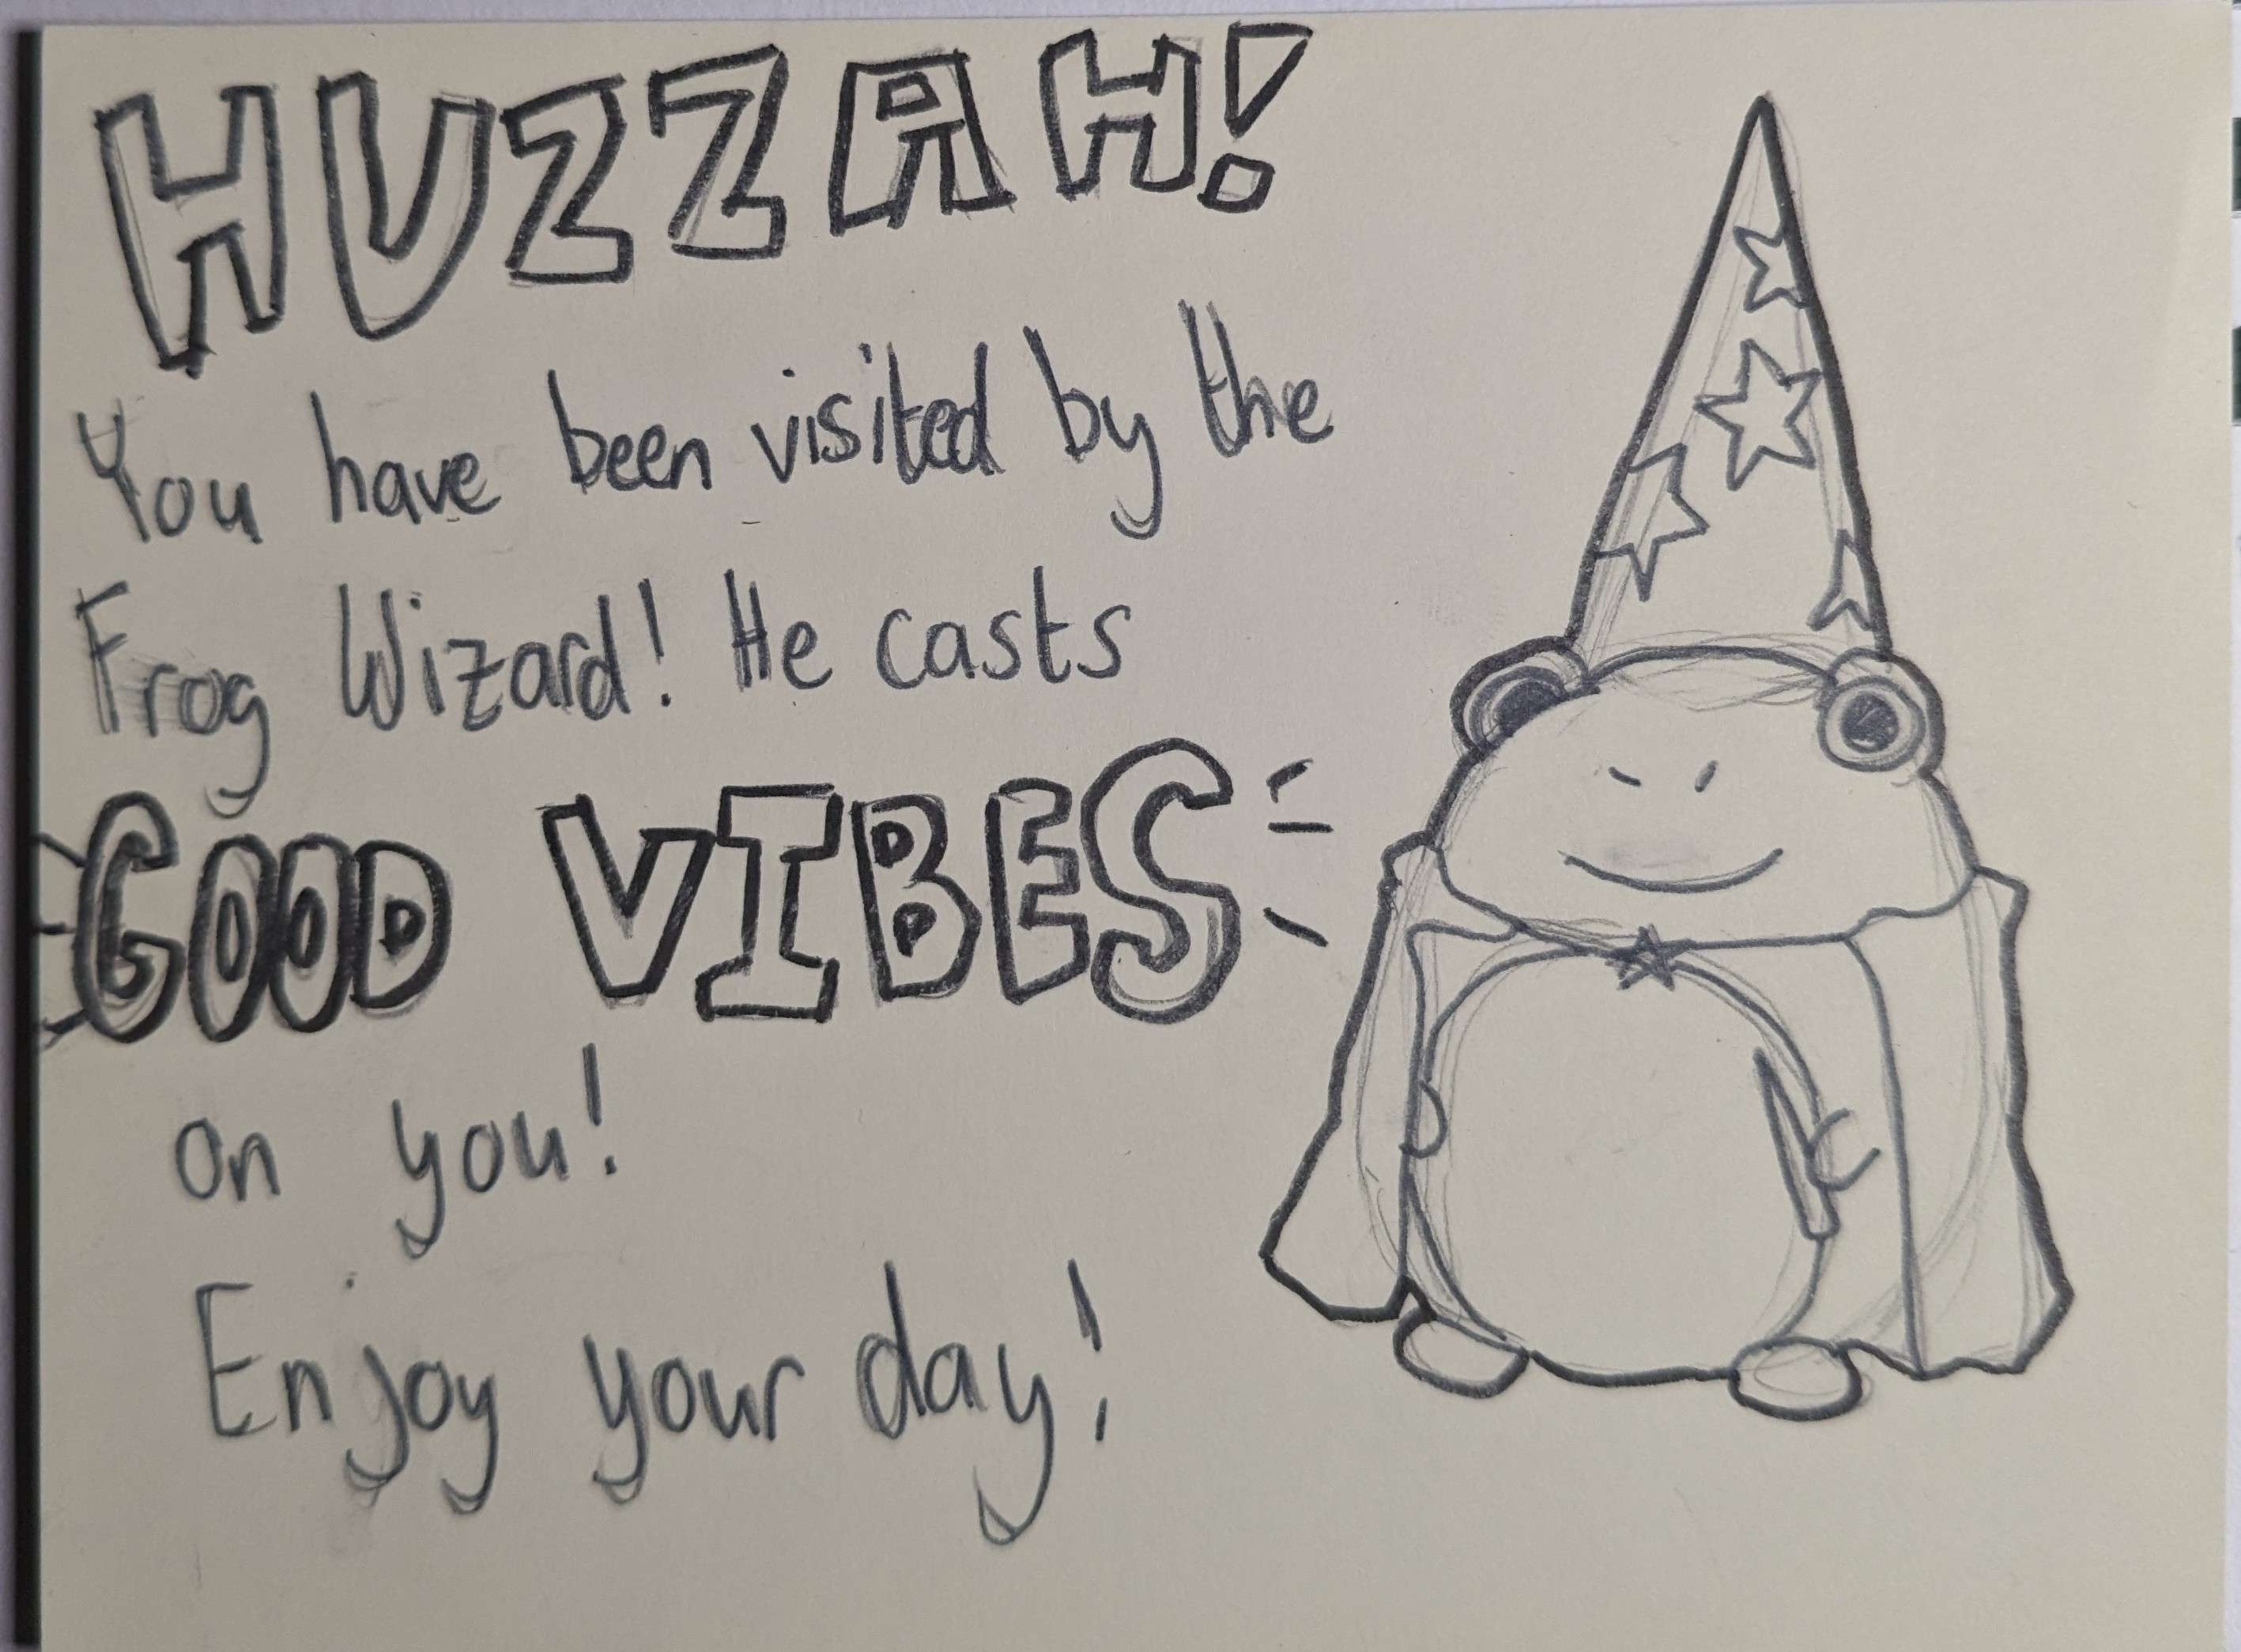 HUZZAH!
You have been visited by the
Frog Wizard! He casts
GOOD VIBES
on you!
Enjoy your day!